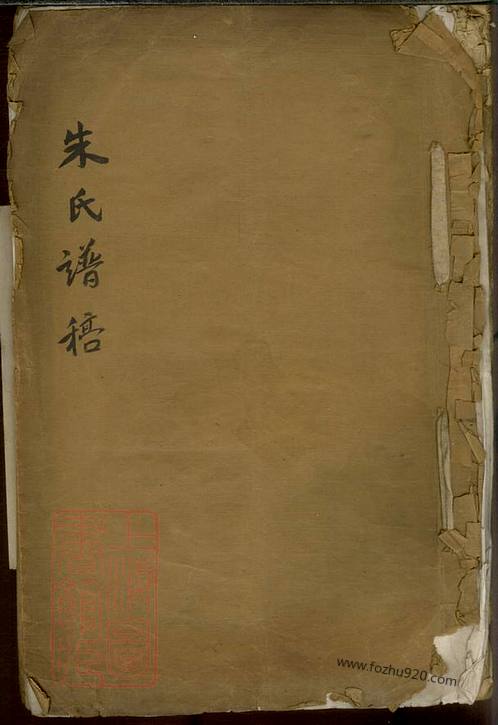 朱氏譜稿
www.fozhu920.com